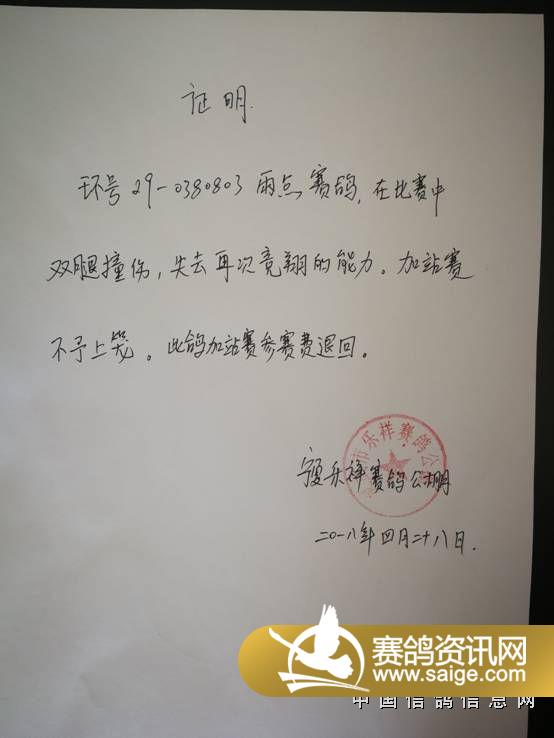 证明.
环号29-0380803雨点赛鸽,在比赛中
双腿撞伤,失去再次竞翔的能力。加站赛
不予上笼。此鸽加站赛参赛费退回。
市乐祥赛鸽公棚
乐祥赛鸽公棚
二〇一八年四月二十八日.
赛鸽资讯网
www.saige.com
中国信鸽信息网